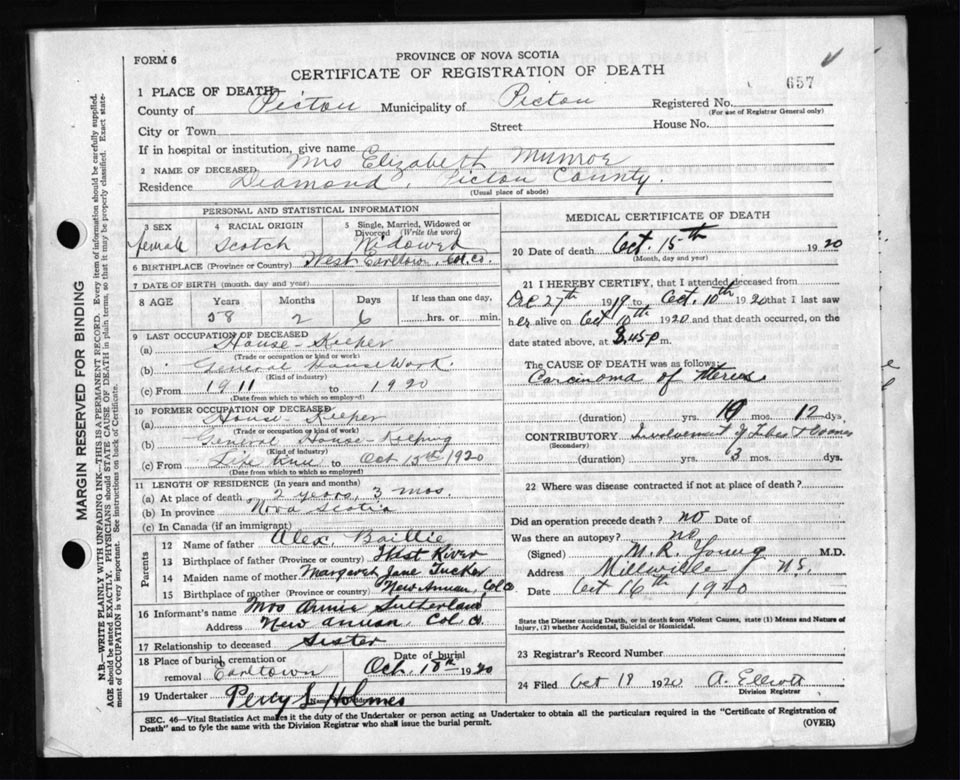 FORM 6
PROVINCE OF NOVA SCOTIA
CERTIFICATE OF REGISTRATION OF DEATH
657
1 PLACE OF DEATH
County of Pictou Municipality of Pictou Registered No. (For use of Registrar General only)
City or Town Street House No.
If in hospital or institution, give name
2 NAME OF DECEASED Mrs Elizabeth Munroe
Residence Diamond, Pictou County. (Usual place of abode)
PERSONAL AND STATISTICAL INFORMATION
3 SEX 4 RACIAL ORIGIN 5 Single, Married, Widowed or Divorced (Write the word)
female Scotch Widowed
6 BIRTHPLACE (Province or Country) West Earltown, Col. Co.
7 DATE OF BIRTH (month, day and year)
8 AGE Years Months Days If less than one day,
58 2 6 hrs. or min.
9 LAST OCCUPATION OF DECEASED
(a) House-Keeper
(Trade or occupation or kind or work)
(b) General House Work.
(Kind of industry)
(c) From 1911 to 1920
(Date from which to which so employed)
10 FORMER OCCUPATION OF DECEASED
(a) House-Keeper
(Trade or occupation or kind of work)
(b) General House-Keeping
(Kind of industry)
(c) From Life to Oct 15th 1920
(Date from which to which so employed)
11 LENGTH OF RESIDENCE (In years and months)
(a) At place of death 2 years, 3 mos.
(b) In province Nova Scotia
(c) In Canada (if an immigrant)
Parents
12 Name of father Alex. Baillie
13 Birthplace of father (Province or country) West River
14 Maiden name of mother Margaret Jane Tucker
15 Birthplace of mother (Province or country) New Annan, Col Co
16 Informant's name Mrs Annie Sutherland
Address New Annan Col. Co.
17 Relationship to deceased Sister
18 Place of burial, cremation or removal Earltown Date of burial Oct. 18th 1920
19 Undertaker Percy L Holmes
MEDICAL CERTIFICATE OF DEATH
20 Date of death Oct. 15th 1920
(Month, day and year)
21 I HEREBY CERTIFY, that I attended deceased from
Dec 27th 1919 to Oct. 10th 1920 that I last saw
her alive on Oct 10th 1920 and that death occurred, on the
date stated above, at 8.45 p m.
The CAUSE OF DEATH was as follows:
Carcinoma of Uterus
(duration) yrs. mos. 12 dys.
CONTRIBUTORY Involvement of Tubes & Ovaries
(Secondary)
(duration) yrs. 3 mos. dys.
22 Where was disease contracted if not at place of death?
Did an operation precede death? no Date of
Was there an autopsy? no
(Signed) M. R. Young M.D.
Address Millville N.S.
Date Oct 16th 1920
State the Disease causing Death, or in death from Violent Causes, state (1) Means and Nature of Injury, (2) whether Accidental, Suicidal or Homicidal.
23 Registrar's Record Number
24 Filed Oct 18 1920 A. Elliott
Division Registrar
SEC. 46—Vital Statistics Act makes it the duty of the Undertaker or person acting as Undertaker to obtain all the particulars required in the "Certificate of Registration of
Death" and to fyle the same with the Division Registrar who shall issue the burial permit. (OVER)
MARGIN RESERVED FOR BINDING
N.B.—WRITE PLAINLY WITH UNFADING INK—THIS IS A PERMANENT RECORD. Every item of information should be carefully supplied.
AGE should be stated EXACTLY. PHYSICIANS should STATE CAUSE OF DEATH in plain terms, so that it may be properly classified. Exact state-
ment of OCCUPATION is very important. See instructions on back of Certificate.